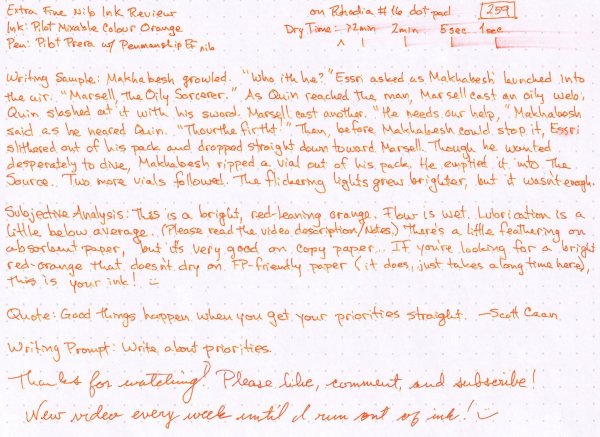 Extra Fine Nib Ink Review on Rhodia #16 dot pad 259
Ink: Pilot Mixable Colour Orange Dry Time: >2min 2min 5sec 1sec
Pen: Pilot Prera w/ Penmanship EF nib
Writing Sample: Makhabesh growled. "Who ith he?" Essri asked as Makhabesh launched into
the air. "Marsell, The Oily Sorcerer." As Quin reached the man, Marsell cast an oily web.
Quin slashed at it with his sword. Marsell cast another. "He needs our help," Makhabesh
said as he neared Quin. "Thourthe firtht!" Then, before Makhabesh could stop it, Essri
slithered out of his pack and dropped straight down toward Marsell. Though he wanted
desperately to dive, Makhabesh ripped a vial out of his pack. He emptied it into The
Source. Two more vials followed. The flickering lights grew brighter, but it wasn't enough.
Subjective Analysis: This is a bright, red-leaning orange. Flow is wet. Lubrication is a
little below average. (Please read the video description/notes.) There's a little feathering on
absorbent paper, but it's very good on copy paper... If you're looking for a bright
red-orange that doesn't dry on FP-friendly paper (it does, just takes a long time here),
this is your ink! :-)
Quote: Good things happen when you get your priorities straight. —Scott Caan
Writing Prompt: Write about priorities.
Thanks for watching! Please like, comment, and subscribe!
New video every week until I run out of ink! :-)